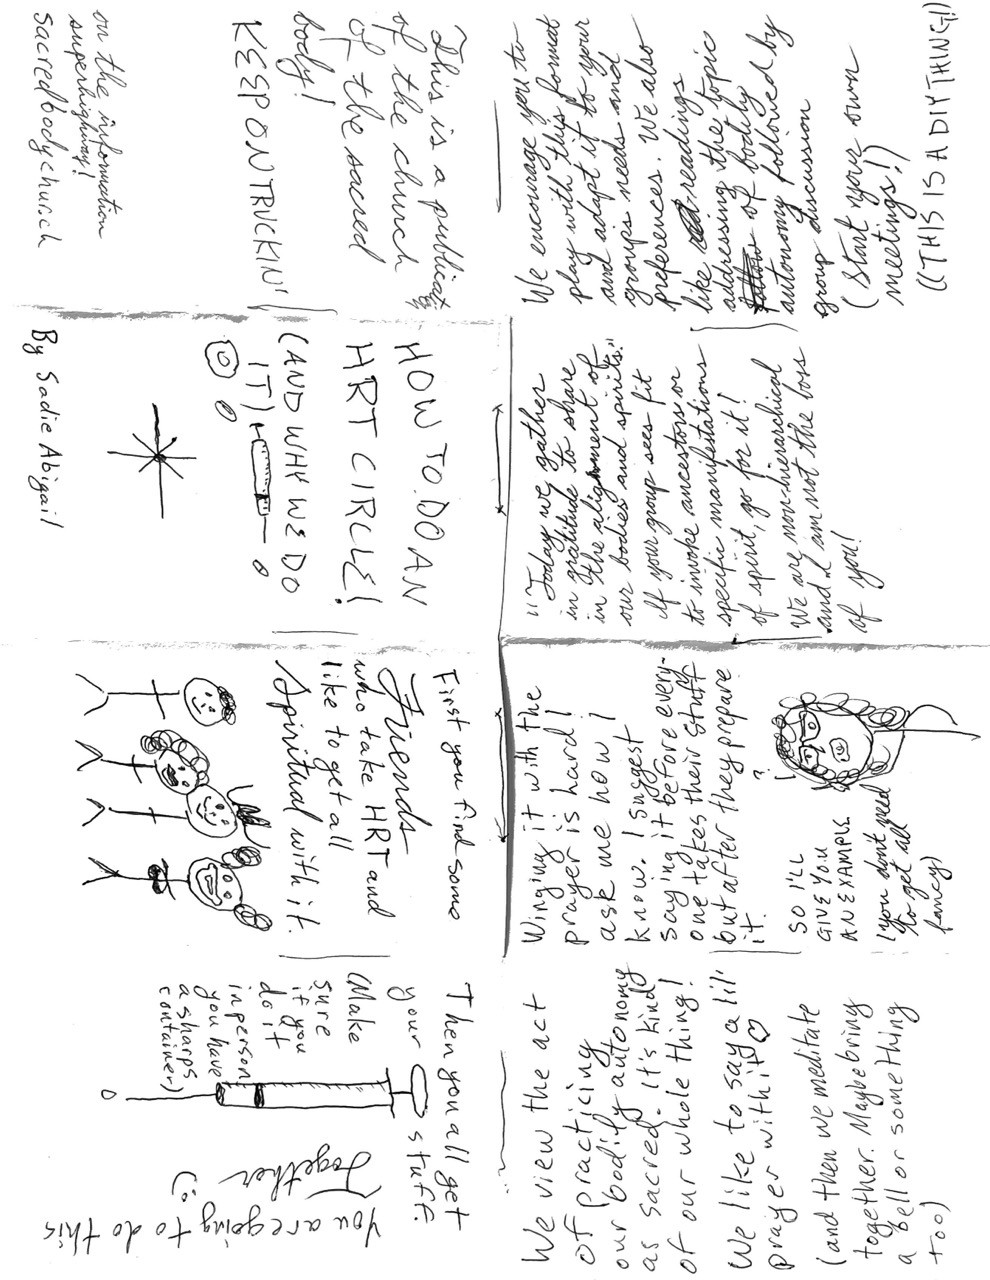 HOW TO DO AN
HRT CIRCLE!
(AND WHY WE DO
IT)
By Sadie Abigail
First you find some
Friends
who take HRT and
like to get all
Spiritual with it.
Then you all get
your stuff.
(Make
sure
if you
do it
in person
you have
a sharps
container)
You are going to do this
Together
(:
We view the act
of practicing
our bodily autonomy
as sacred. it's kind
of our whole thing!
We like to say a lil'
prayer with it ♡
(and then we meditate
together. Maybe bring
a bell or something
too)
Winging it with the
prayer is hard!
ask me how I
know. I suggest
saying it before every-
one takes their stuff
but after they prepare
it.
?
SO I'LL
GIVE YOU
AN EXAMPLE
(you don't need
to get all
fancy)
"Today we gather
in gratitude to share
in the alignment of
our bodies and spirits."
If your group sees fit
to invoke ancestors or
specific manifestations
of spirit, go for it!
We are non-hierarchical
and I am not the boss
of you!
We encourage you to
play with this format
and adapt it to your
groups needs and
preferences. We also
like readings
addressing the topic
of bodily
autonomy followed by
group discussion
(Start your own
meetings!)
((THIS IS A DIY THING!)
This is a publication
of the church
of the sacred
body!
KEEP ON TRUCKIN'
on the information
superhighway!
sacredbodychurch